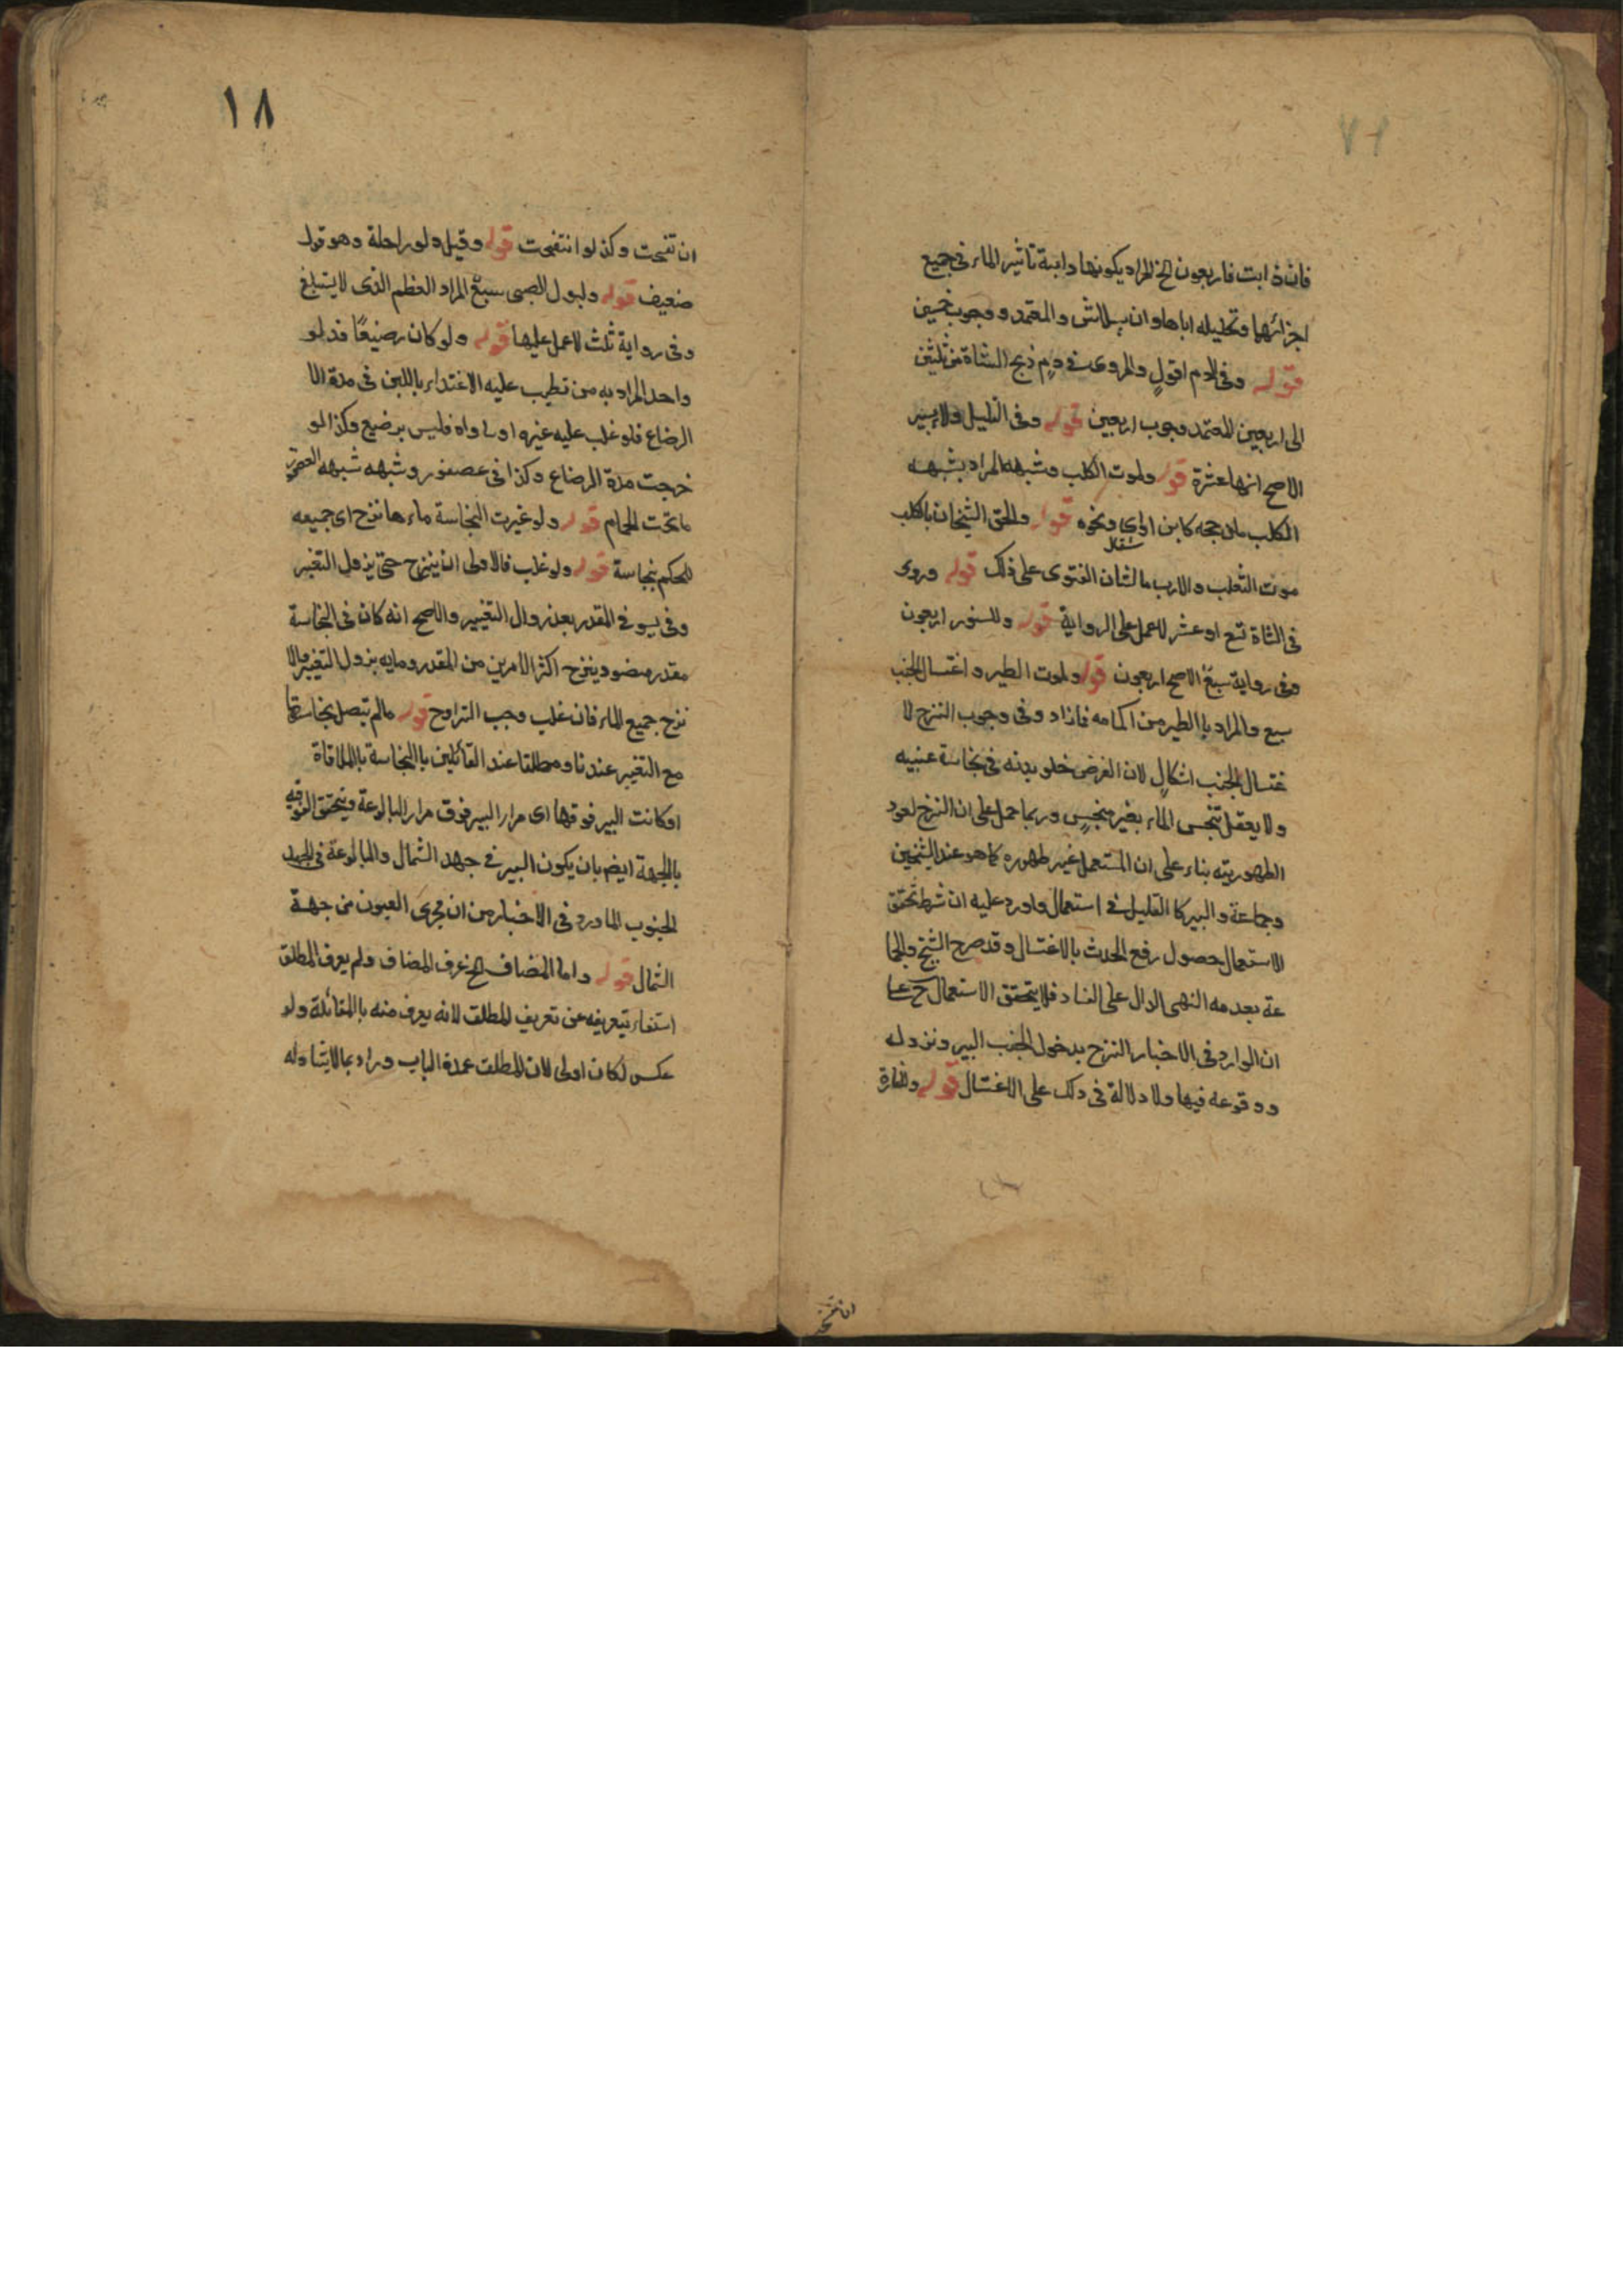 فان ذابت فاربعون الخ المراد بكونها دائبة تاثير الماء فى جميع
اجزائها وتحليله اياها وان والمعتمد ووجوب خمسين
قوله وفى الدم اقول والمروى فى دم ذبح الشاة من ثلثين
الى اربعين المعتمد وجوب اربعين قوله وفى القليل ولا يسير
الاصح انها عشرة قوله ولموت الكلب وشبهه المراد بشبهه
الكلب مادى حجمه كابن اوى ونحوه قوله والحق الشيخان بالكلب
موت الثعلب والارنب مالشان الفتوى على ذلك قوله وروى
فى الشاة تسع او عشر لا عمل على الرواية قوله وللسنور اربعون
وفى رواية سبع الاصح اربعون قوله ولموت الطير واغتسال الجنب
سبع والمراد باالطير من الحمامه فمازاد وفى وجوب النزح لا
غتسال الجنب اشكال لان الفرض خلو بدنه فى نجاسة عينيه
ولا يعقل تنجس الماء بغير منجس وربما حمل على ان النزح لعود
الطهوريته بناء على ان المستعمل غير طهوره كما هو عند الشيخين
وجماعة والبير كا القليل فى استعمال واورد عليه ان شرط تحقق
الاستعمال حصول رفع الحدث بالاغتسال وقد صرح الشيخ والجما
عة بعدمه النهى الدال على الفساد فلا يتحقق الاستعمال ح على
ان الوارد فى الاخبار النزح بدخول الجنب البير ونزوله
ووقوعه فيها ولا دلالة فى ذلك على الاغتسال قوله وللفارة
ان تفسخت
١٨
ان تفسخت وكذ لو انتفخت قوله وقيل دلو واحلة وهو قول
ضعيف قوله ولبول الصبى سبع المراد الفطم الذى لا يستبلغ
وفى رواية ثلث لا عمل عليها قوله ولو كان رضيعًا فدلو
واحد المراد به من تطيب عليه الاغتداء باللبن فى مدة الا
الرضاع فلو غلب عليه غيره او ساواه فليس برضيع وكذا لو
خرجت مدة الرضاع وكذا فى عصفور وشبهه شبهه العصفور
ماتحت الحمام قوله ولو غيرت النجاسة ماءها نزح اى جميعه
للحكم بنجاسة قوله ولو غلب فالاولى ان ينزح حتى يزول التغير
وفى يسوفى المقدر بعد زوال التغيير والاصح انه كان فى النجاسة
مقدر منصود ينزح اكثر الامرين من المقدر ومابه يزول التغيير والا
نزح جميع الماء فان غلب وجب التراوح قوله مالم تتصل نجاستها
مع التغيير عندنا ومطلقا عند القائلين باالنجاسة باالملاقاة
اوكانت البير فوقها اى مرار البير فوق مرار البالوعة ويتحقق الفوقيه
بالجهة ايضم بان يكون البير فى جهد الشمال والبالوعة فى الجهد
الجنوب لما ورد فى الاخبار من ان مجرى العيون من جهة
الشمال قوله واما المضاف الخ عرف المضاف ولم يعرف المطلق
استغناء بتعريفه عن تعريف المطلق لانه يعرف منه باالمقابلة ولو
عكس لكان اولى لان المطلق عمدة الباب ومراد بمالايتناوله